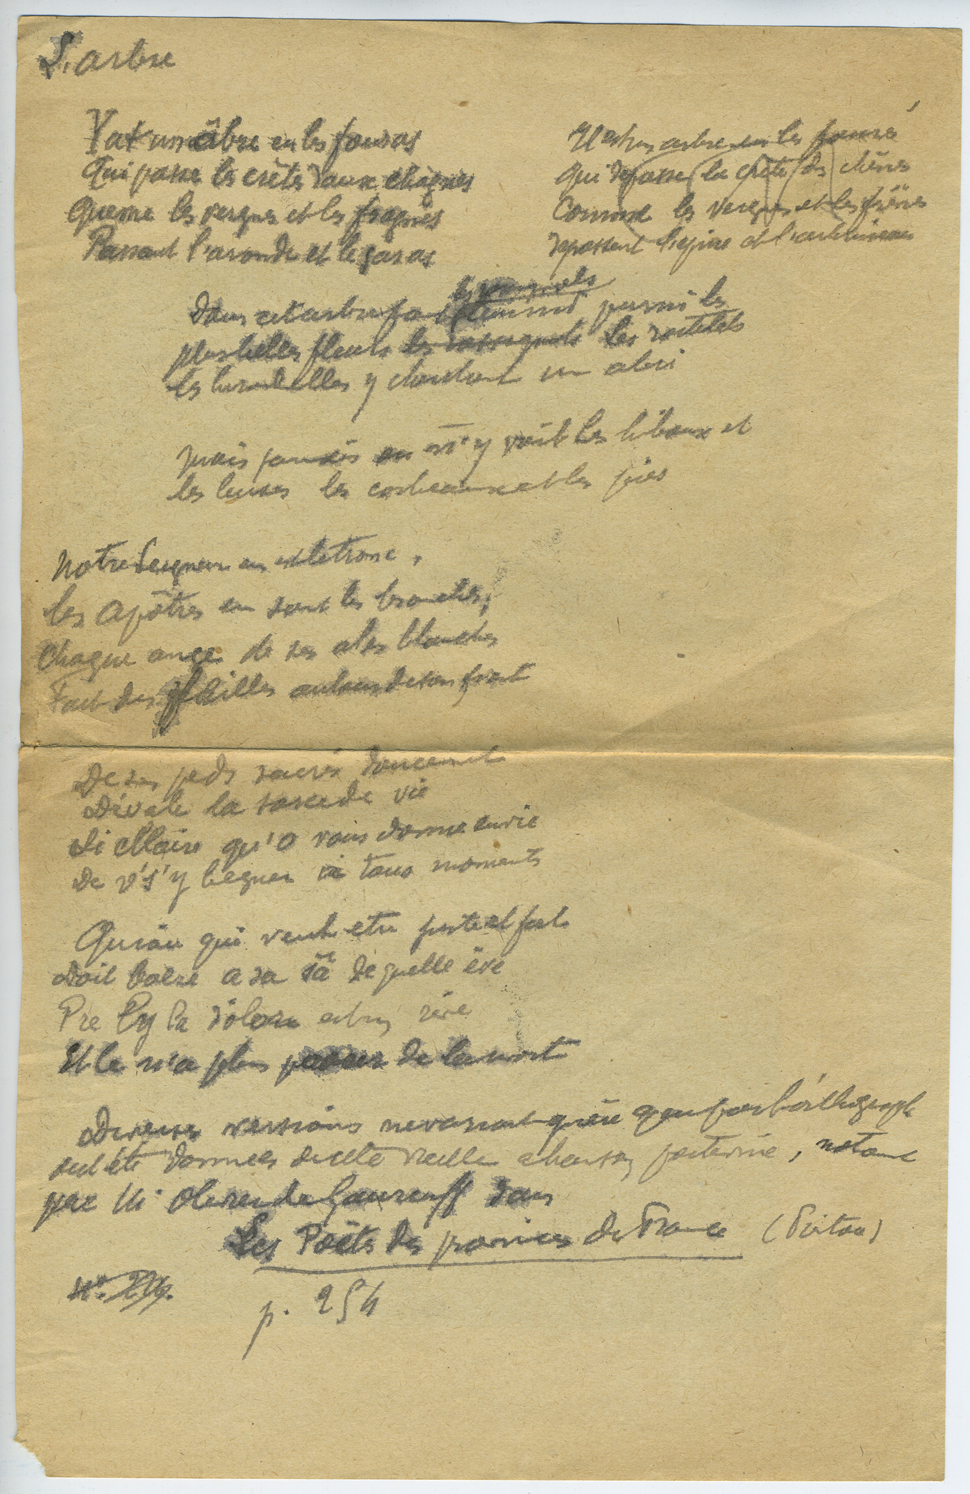 L'arbre
Y at un âbre en les fousas
Qui passe les crêtes daux châgnes
Queme les vergnes et les fragnes
Passant l'aronde et le garas
Il est un arbre en les fossés
Qui dépasse la crête des chênes
Comme les vergnes et les frênes
dépassent l'épine et l'arbrisseau
les rossignols
Dans cet arbre font parmi les
plus belles fleurs les rossignols les roitelets
les hirondelles y cherchent un abri
mais jamais on n'y voit les hiboux et
les buses les corbeaux et les pies
Notre Seigneur en est le tronc,
les apôtres en sont les branches,
Chaque ange de ses ales blanches
Fait des feilles autour de son front
De ses peds sacrés doucement
Dévale la sace de vie
Si cllaire qu'o vous donne envie
De v's'y begner à tous moments
Quiau qui veut etre juste et fort
Doit boére a sa sé de quelle éve
Pre ly la doleur est un réve
Et le n'a plus paour de la mort
Diverses versions ne variant guère que par l'orthographe
ont été données de cette vieille chanson poitevine, notamt
par M. Olivier de Gourcuff dans
Les Poètes des provinces de France (Poitou)
p. 254